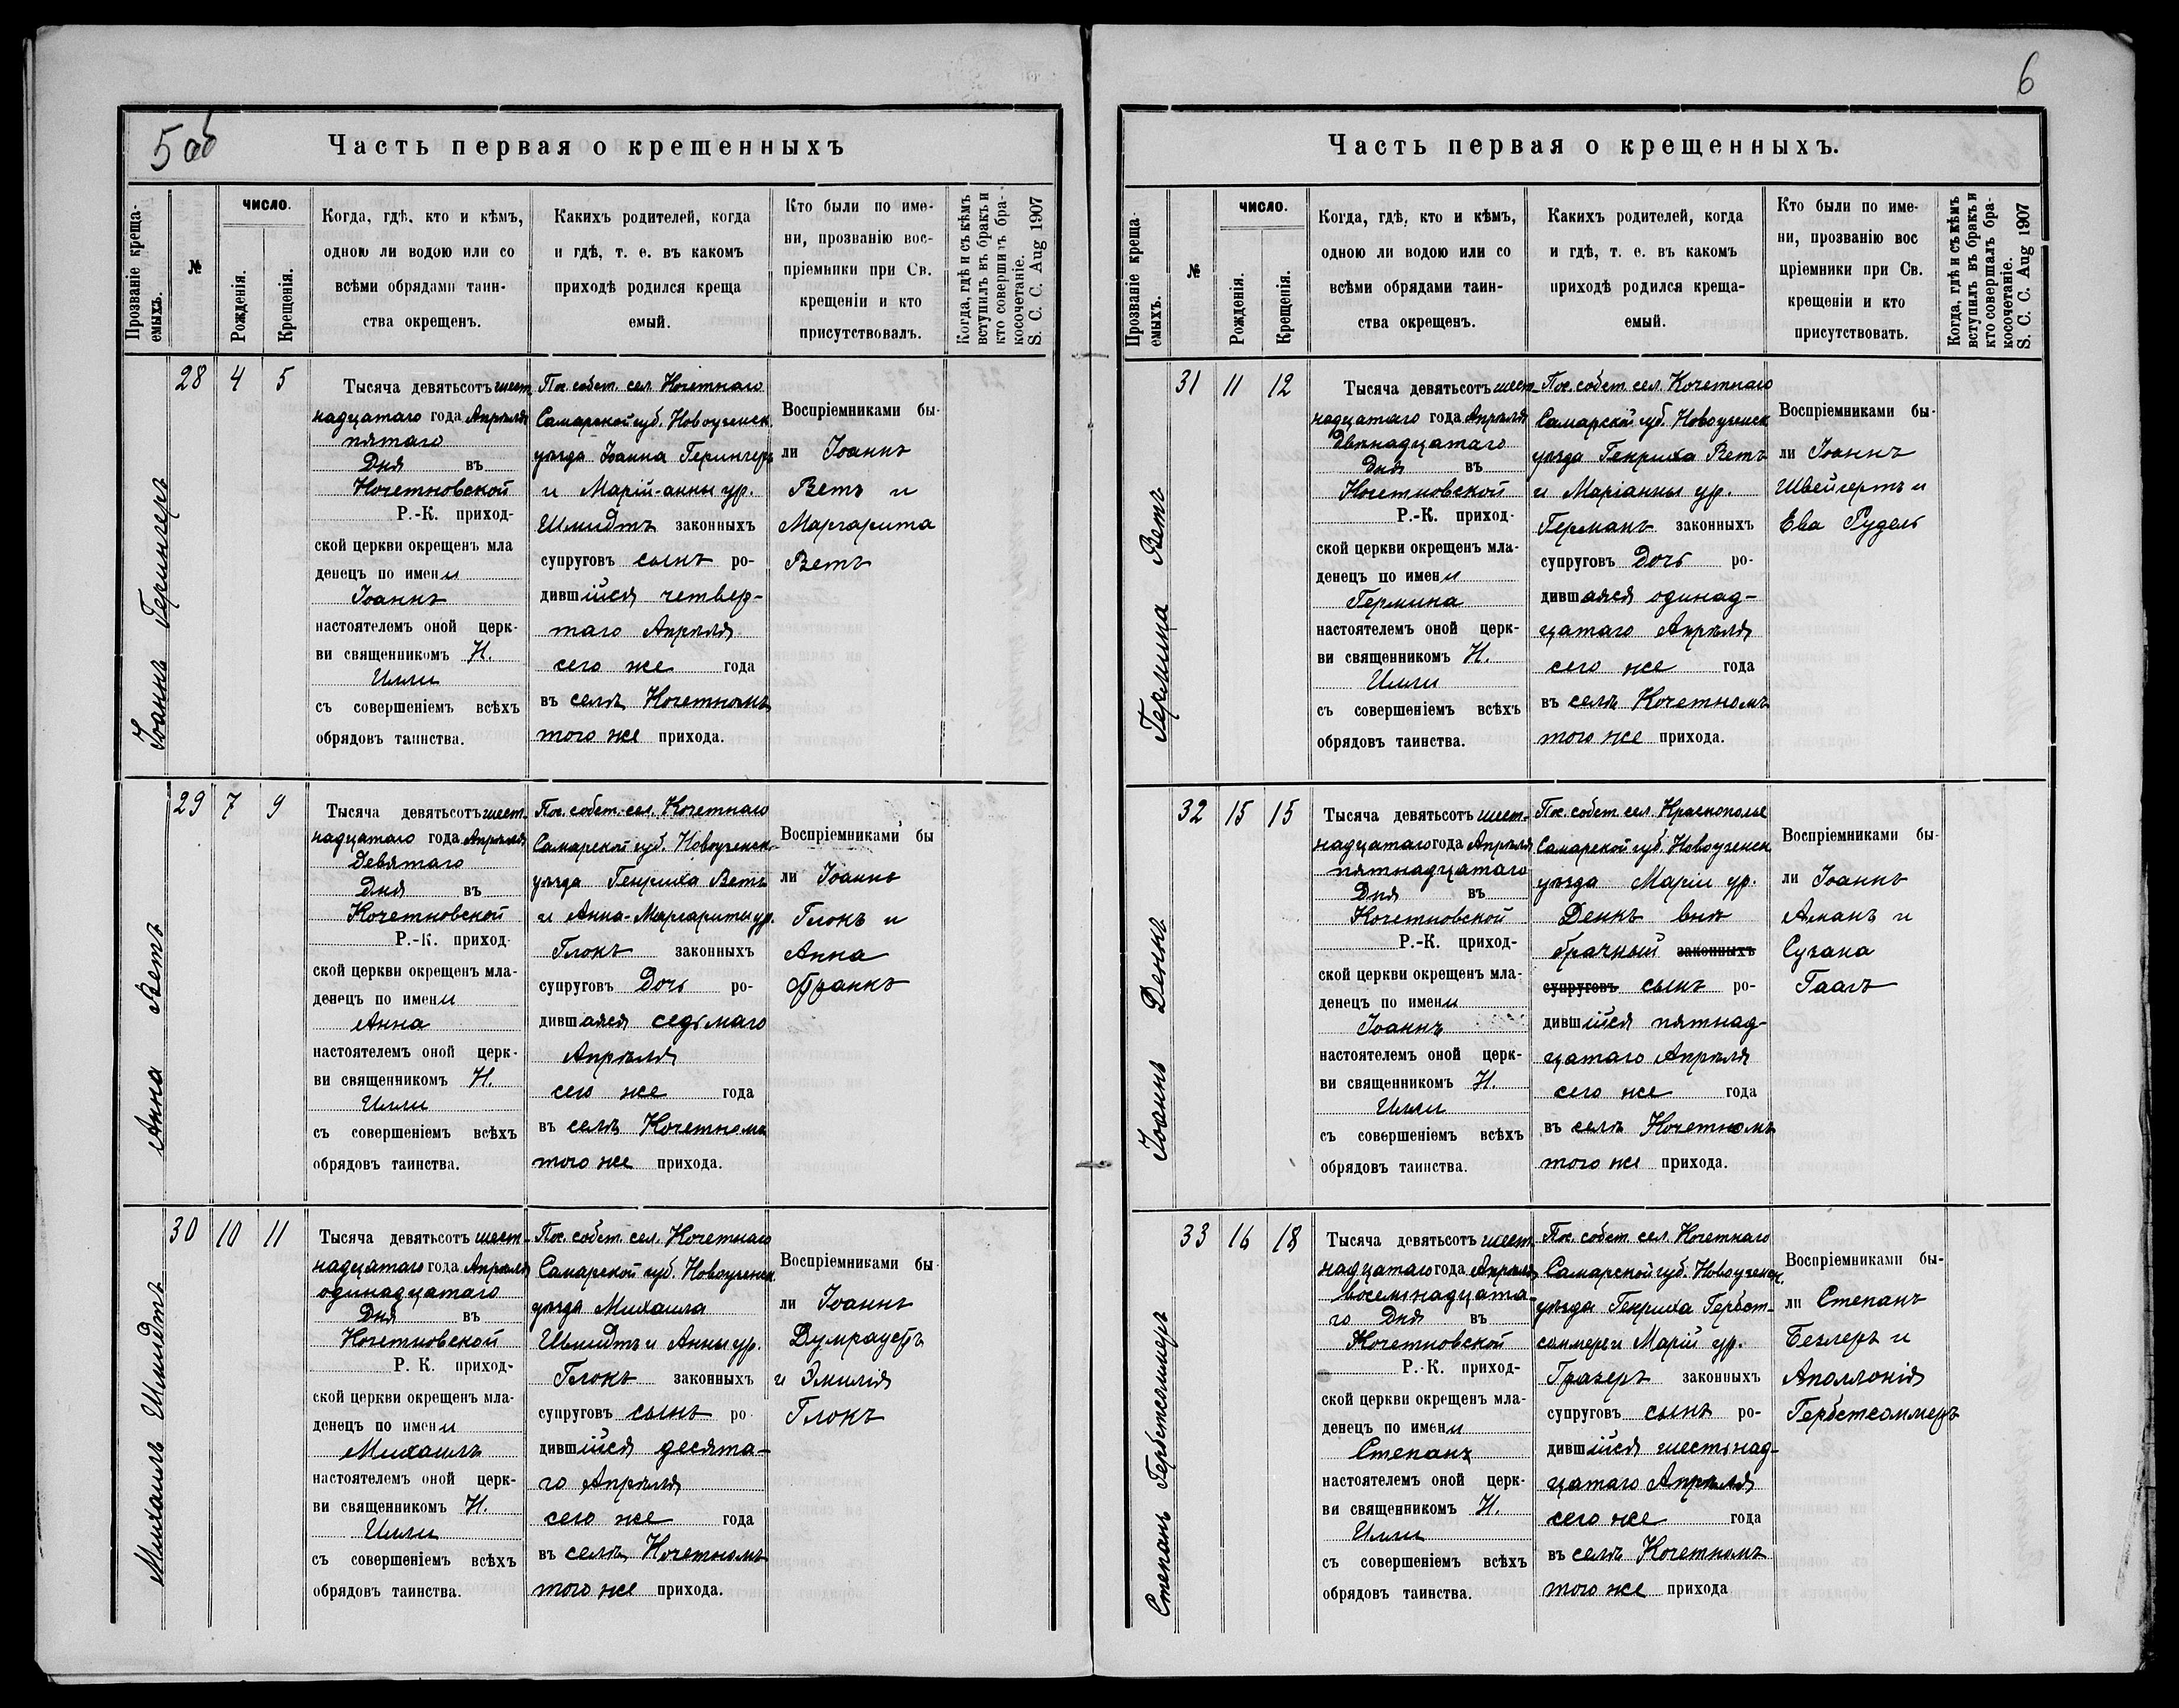 5 об
Часть первая о крещенныхъ
Прозваніе креща-
емыхъ.
№
число.
Рожденія.
Крещенія.
Когда, гдѣ, кто и кѣмъ,
одною ли водою или со
всѣми обрядами таин-
ства окрещенъ.
Какихъ родителей, когда
и гдѣ, т. е. въ какомъ
приходѣ родился креща
емый.
Кто были по име-
ни, прозванію вос-
пріемники при Св.
крещеніи и кто
присутствовалъ.
Когда, гдѣ и съ кѣмъ
вступилъ въ бракъ и
кто совершилъ бра-
косочетаніе.
S. C. C. Aug 1907
Іоаннъ Герингеръ
28 4 5
Тысяча девятьсотъ шест-
надцатаго года Апрѣля
пятаго
Дня въ
Кочетновской
Р.-К. приход-
ской церкви окрещенъ мла
денецъ по имени
Іоаннъ
настоятелемъ оной церк-
ви священникомъ Н.
Илли
съ совершеніемъ всѣхъ
обрядовъ таинства.
Пос. собст. сел. Кочетнаго
Самарской губ. Новоузенск.
уѣзда Іоанна Герингеръ
и Марій-анны ур.
Шмидтъ законныхъ
супруговъ сынъ ро-
дившійся четвер-
таго Апрѣля
сего же года
въ селѣ Кочетномъ
того же прихода.
Воспріемниками бы-
ли Іоаннъ
Ветъ и
Маргарита
Ветъ
Анна Ветъ
29 7 9
Тысяча девятьсотъ шест-
надцатаго года Апрѣля
Девятаго
Дня въ
Кочетновской
Р.-К. приход-
ской церкви окрещенъ мла-
денецъ по имени
Анна
настоятелемъ оной церк-
ви священникомъ Н.
Илли
съ совершеніемъ всѣхъ
обрядовъ таинства.
Пос. собст. сел. Кочетнаго
Самарской губ. Новоузенск.
уѣзда Генриха Ветъ
и Анна-Маргариты ур.
Глокъ законныхъ
супруговъ Дочь ро-
дившаяся седьмаго
Апрѣля
сего же года
въ селѣ Кочетномъ
того же прихода.
Воспріемниками бы
ли Іоаннъ
Глокъ и
Анна
Франкъ
Михаилъ Шмидтъ
30 10 11
Тысяча девятьсотъ шест-
надцатаго года Апрѣля
одинадцатаго
Дня въ
Кочетновской
Р. К. приход-
ской церкви окрещенъ мла-
денецъ по имени
Михаилъ
настоятелемъ оной церк-
ви священникомъ Н.
Илли
съ совершеніемъ всѣхъ
обрядовъ таинства.
Пос. собст. сел. Кочетнаго
Самарской губ. Новоузенск.
уѣзда Михаила
Шмидтъ и Анны ур.
Глокъ законныхъ
супруговъ сынъ ро
дившійся десята-
го Апрѣля
сего же года
въ селѣ Кочетномъ
того же прихода.
Воспріемниками бы
ли Іоаннъ
Думрауфъ
и Эмилія
Глокъ
6
Часть первая о крещенныхъ.
Прозваніе креща-
емыхъ.
№
число.
Рожденія.
Крещенія.
Когда, гдѣ, кто и кѣмъ,
одною ли водою или со
всѣми обрядами таин-
ства окрещенъ.
Какихъ родителей, когда
и гдѣ, т. е. въ какомъ
приходѣ родился креща-
емый.
Кто были по име-
ни, прозванію вос
пріемники при Св.
крещеніи и кто
присутствовать.
Когда, гдѣ и съ кѣмъ
вступилъ въ бракъ и
кто совершалъ бра-
косочетаніе.
S. C. C. Aug 1907
Гермина Ветъ
31 11 12
Тысяча девятьсотъ шест-
надцатаго года Апрѣля
Двѣнадцатаго
Дня въ
Кочетновской
Р.-К. приход-
ской церкви окрещенъ мла-
денецъ по имени
Гермина
настоятелемъ оной церк-
ви священникомъ Н.
Илли
съ совершеніемъ всѣхъ
обрядовъ таинства.
Пос. собст. сел. Кочетнаго
Самарской губ. Новоузенск.
уѣзда Генриха Ветъ
и Маріанны ур.
Германъ законныхъ
супруговъ Дочь ро-
дившаяся одинад-
цатаго Апрѣля
сего же года
въ селѣ Кочетномъ
того же прихода.
Воспріемниками бы-
ли Іоаннъ
Швейгертъ и
Ева Рудель
Іоаннъ Денкъ
32 15 15
Тысяча девятьсотъ шест-
надцатаго года Апрѣля
пятнадцатаго
Дня въ
Кочетновской
Р.-К. приход-
ской церкви окрещенъ мла-
денецъ по имени
Іоаннъ
настоятелемъ оной церк-
ви священникомъ Н.
Илли
съ совершеніемъ всѣхъ
обрядовъ таинства.
Пос. собст. сел. Краснополье
Самарской губ. Новоузенск
уѣзда Маріи ур.
Денкъ внѣ
брачный законныхъ
супруговъ сынъ ро-
дившійся пятнад-
цатаго Апрѣля
сего же года
въ селѣ Кочетномъ
того же прихода.
Воспріемниками бы-
ли Іоаннъ
Аманъ и
Сузана
Гаагъ
Степанъ Гербстсоммеръ
33 16 18
Тысяча девятьсотъ шест-
надцатаго года Апрѣля
восемнадцата-
го Дня въ
Кочетновской
Р.-К. приход-
ской церкви окрещенъ мла-
денецъ по имени
Степанъ
настоятелемъ оной церк-
ви священникомъ Н.
Илли
съ совершеніемъ всѣхъ
обрядовъ таинства.
Пос. собст. сел. Кочетнаго
Самарской губ. Новоузенск.
уѣзда Генриха Гербст-
соммеръ и Марій ур.
Гразеръ законныхъ
супруговъ сынъ ро-
дившійся шестьнад-
цатаго Апрѣля
сего же года
въ селѣ Кочетномъ
того же прихода
Воспріемниками бы-
ли Степанъ
Безлеръ и
Аполлонія
Гербстсоммеръ